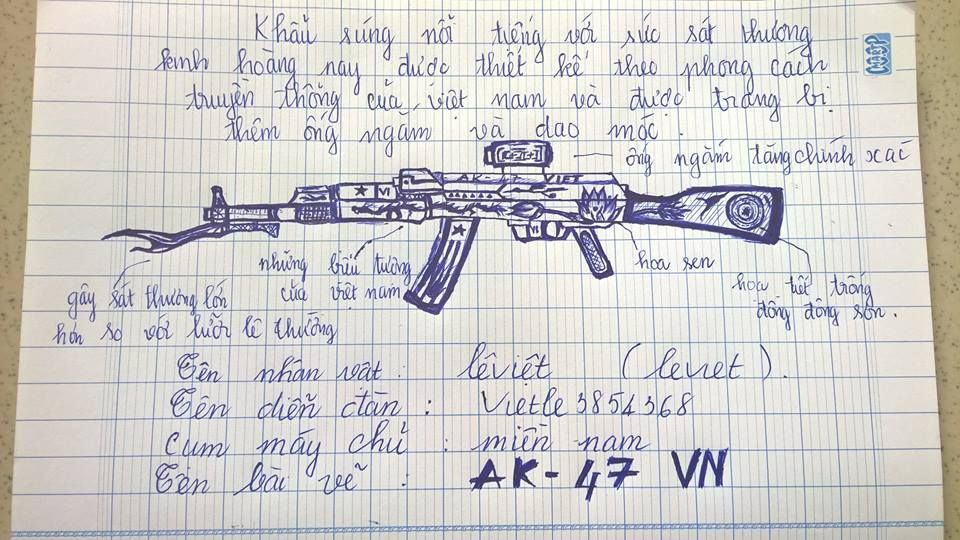 Khẩu súng nổi tiếng với sức sát thương
kinh hoàng này được thiết kế theo phong cách
truyền thống của việt nam và được trang bị
thêm ống ngắm và dao móc.
ống ngắm tăng chính xác
AK-47 VIET
VI
VI
những biểu tượng
của việt nam
hoa sen
gây sát thương lớn
hơn so với lưỡi lê thường
hoa tiết trống
đồng đông sơn.
Tên nhân vật: lêviệt (leviet).
Tên diễn đàn: Vietle3854368
cụm máy chủ: miền nam
Tên bài vẽ: AK-47 VN